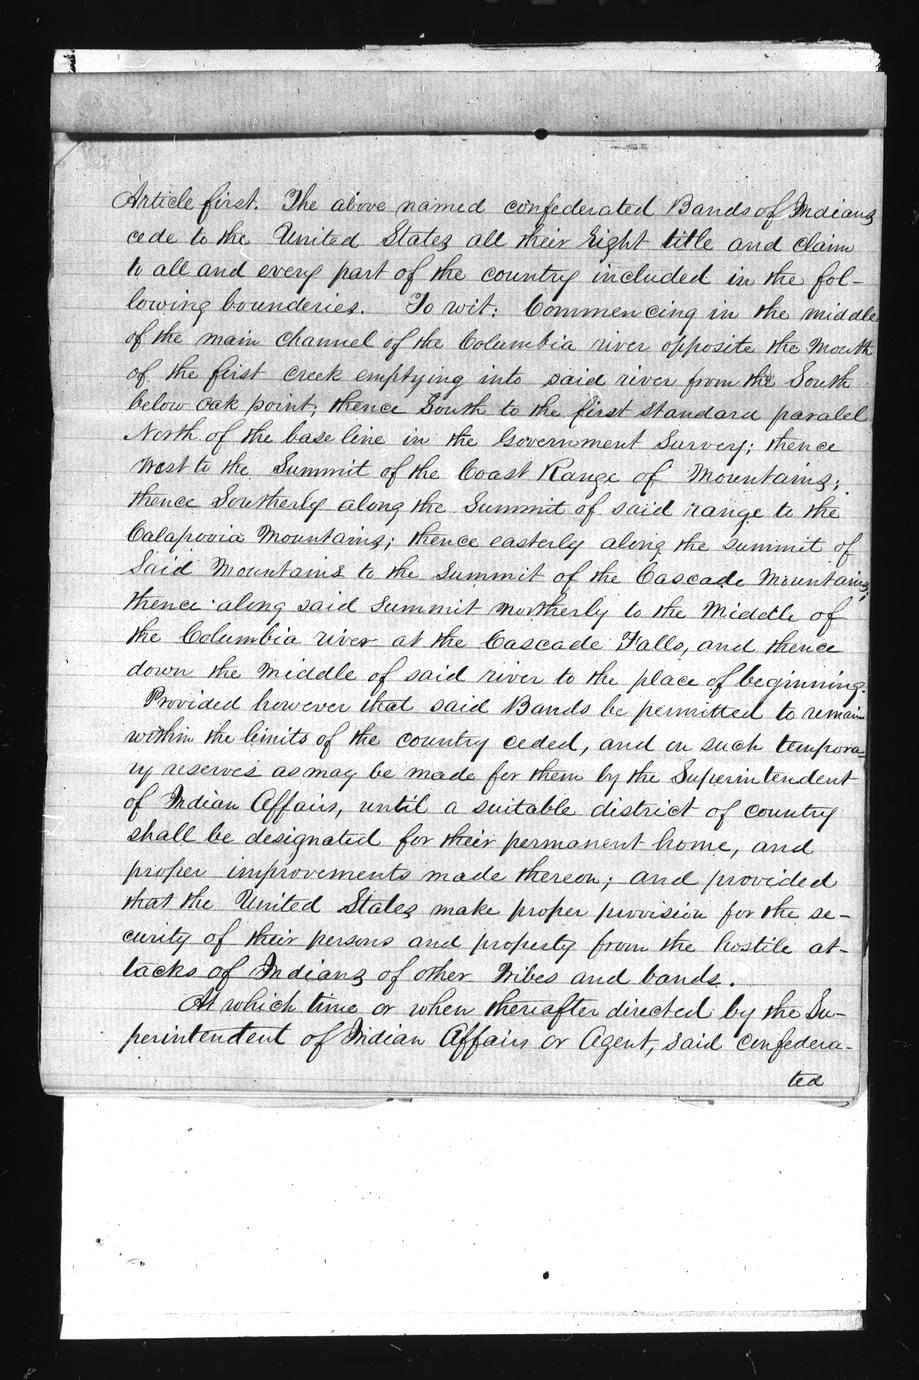 Article first. The above named confederated Bands of Indians
cede to the United States all their right title and claim
to all and every part of the country included in the fol-
lowing bounderies. To wit: Commencing in the middle
of the main channel of the Columbia river opposite the Mouth
of the first creek emptying into said river from the South
below oak point, thence South to the first standard paralel
North of the base line in the Government Survey; thence
West to the Summit of the Coast Range of Mountains;
thence Southerly along the Summit of said range to the
Calapooia Mountains; thence easterly along the summit of
Said Mountains to the Summit of the Cascade Mountains;
thence along said Summit northerly to the Middle of
the Columbia river at the Cascade Falls, and thence
down the Middle of said river to the place of beginning.
Provided however that said Bands be permitted to remain
within the limits of the country ceded, and on such tempora-
ry reserves as may be made for them by the Superintendent
of Indian Affairs, until a suitable district of country
shall be designated for their permanent home, and
proper improvements made thereon; and provided
that the United States make proper provision for the se-
curity of their persons and property from the hostile at-
tacks of Indians of other Tribes and bands.
At which time or when thereafter directed by the Su-
perintendent of Indian Affairs or Agent, said confedera-
ted